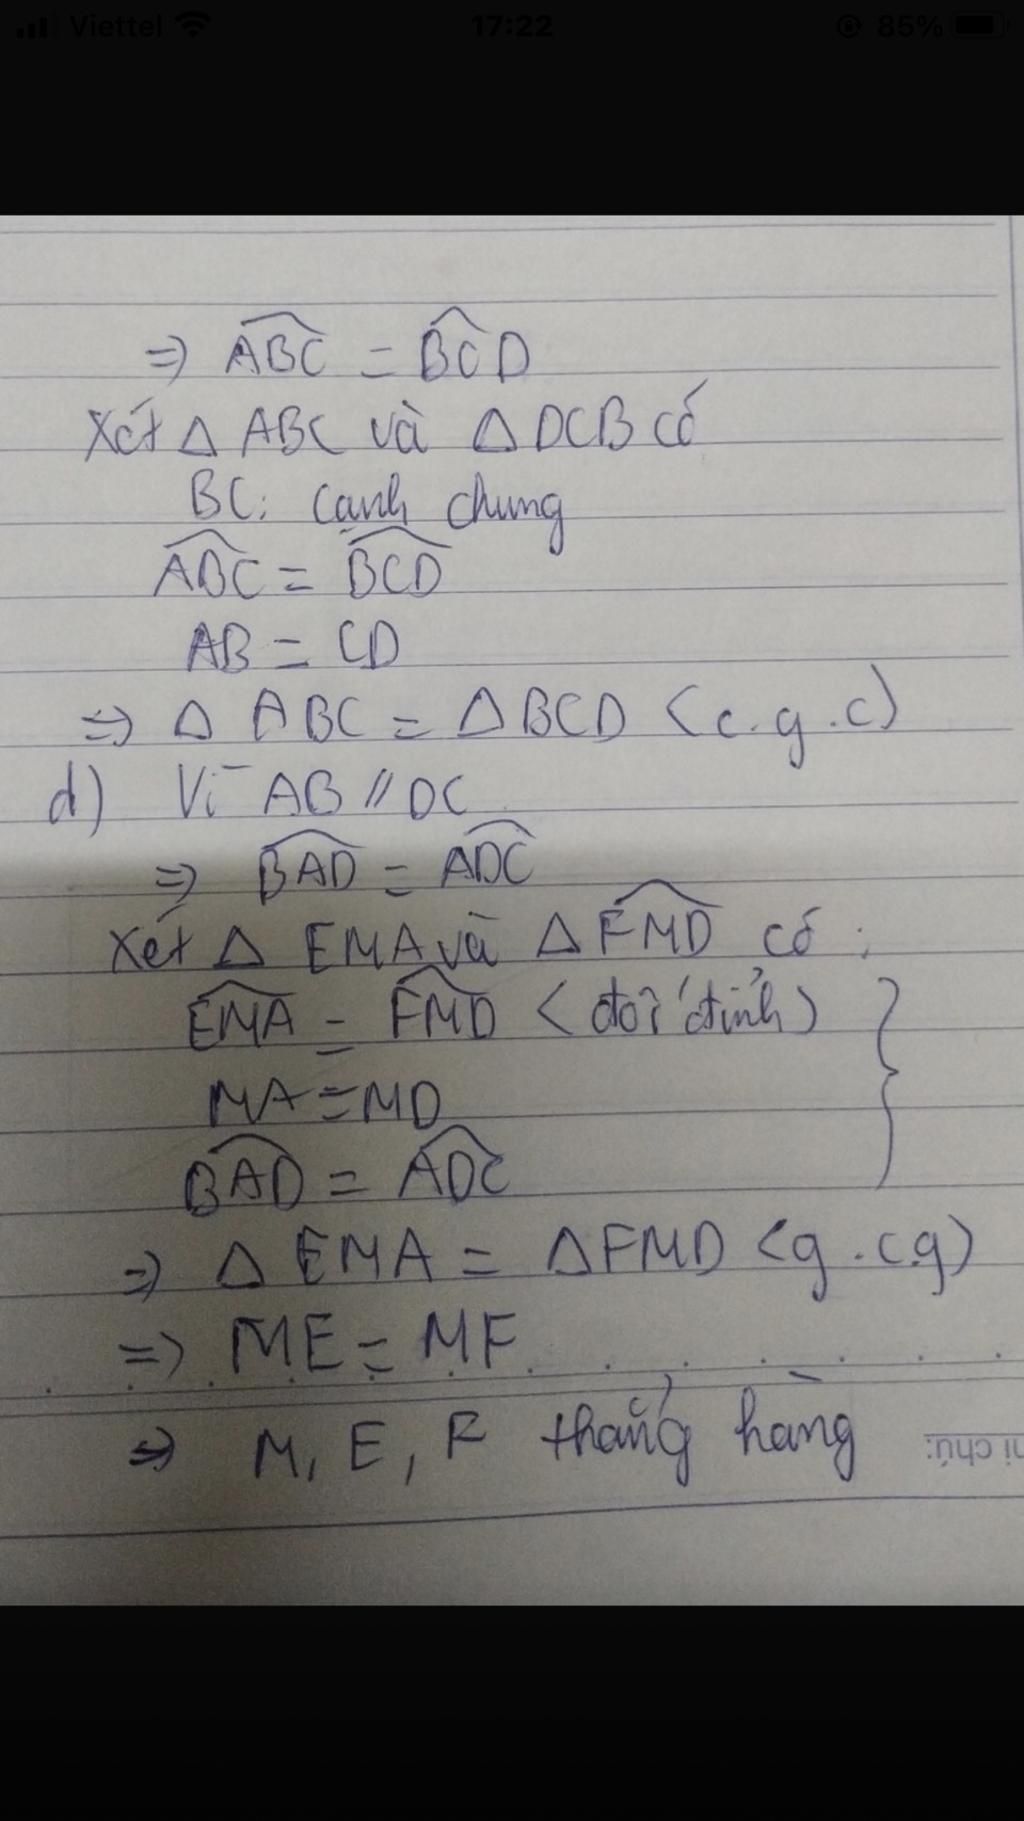 Viettel 17:22 85%
⇒ ABC = BCD
Xét Δ ABC và Δ DCB có
BC: cạnh chung
ABC = BCD
AB = CD
⇒ Δ ABC = Δ BCD (c.g.c)
d) Vì AB // DC
⇒ BAD = ADC
Xét Δ EMA và Δ FMD có:
EMA = FMD (đối đỉnh)
MA = MD
BAD = ADC
⇒ Δ EMA = Δ FMD (g.c.g)
⇒ ME = MF
⇒ M, E, F thẳng hàng
hi chú: